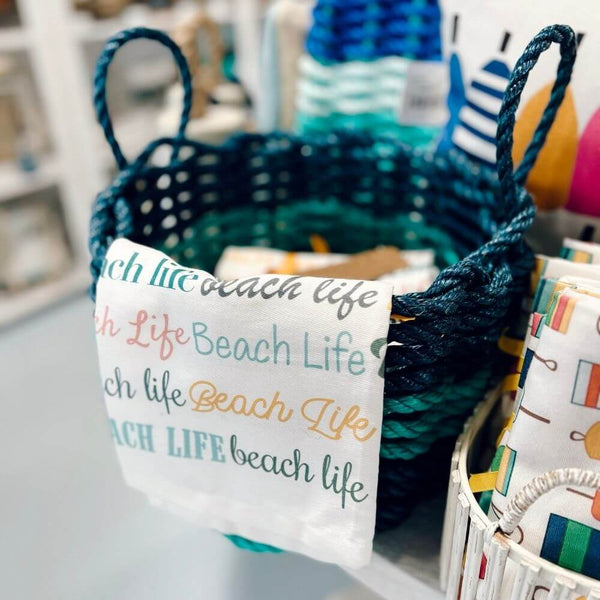 ach life beach life
h Life Beach Life
ach life Beach Life
ACH LIFE beach life